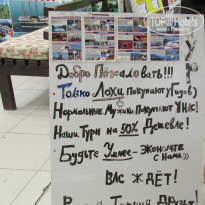 ТОПHOTELS
Добро Пожаловать!!!
Только Лохи Покупают у Гидов)
Нормальные Мужики Покупают У НАС!
Наши Туры на 50% Дешевле!
Будьте Умнее - Экономьте
с Нами))
Вас ЖДЁТ!